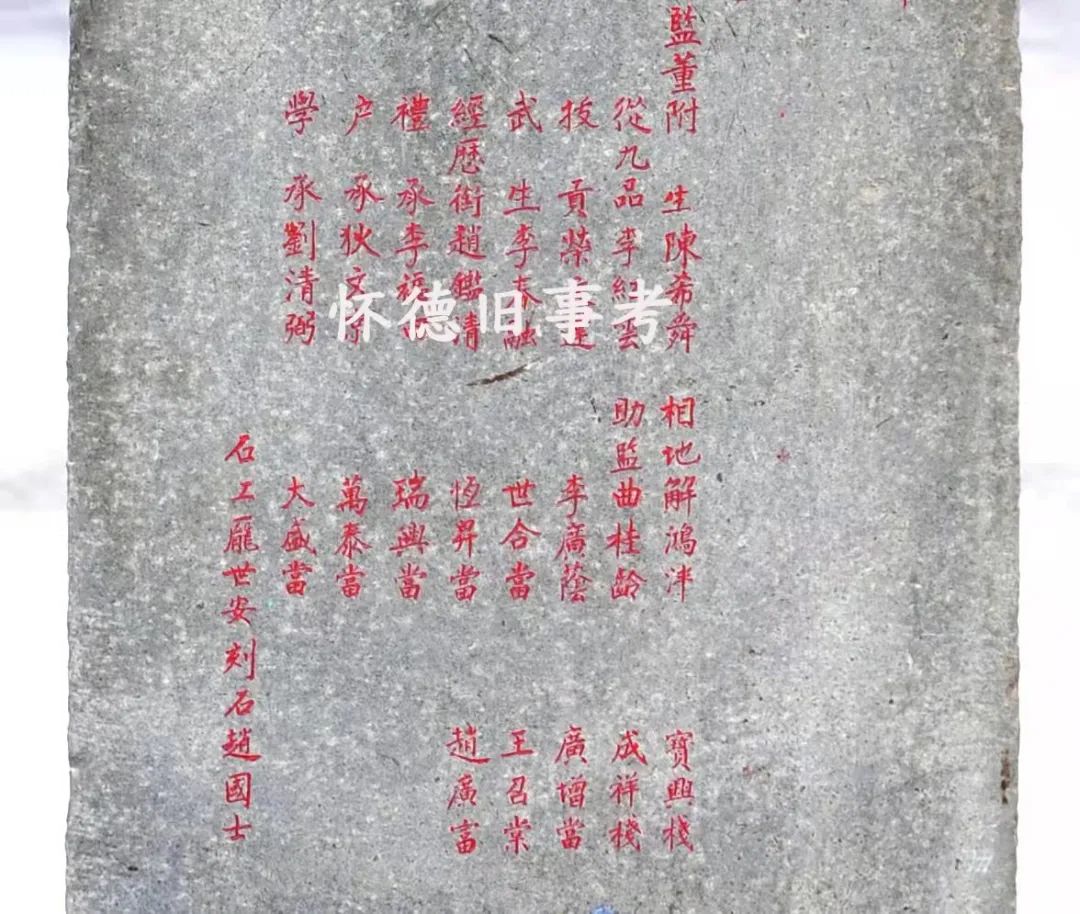 監董附 生陳希舜 相地解鴻津 寶興棧
從九品李 雲 助監曲桂齡 成祥棧
拔 貢榮 達 李廣蔭 廣增當
武 生李春融 世合當 王召棠
經歷銜趙鑑清 恆昇當 趙廣富
禮 承李 瑞興當
户 承狄文 萬泰當
學 承劉清弼 大盛當
石工龐世安刻石趙國士
怀德旧事考